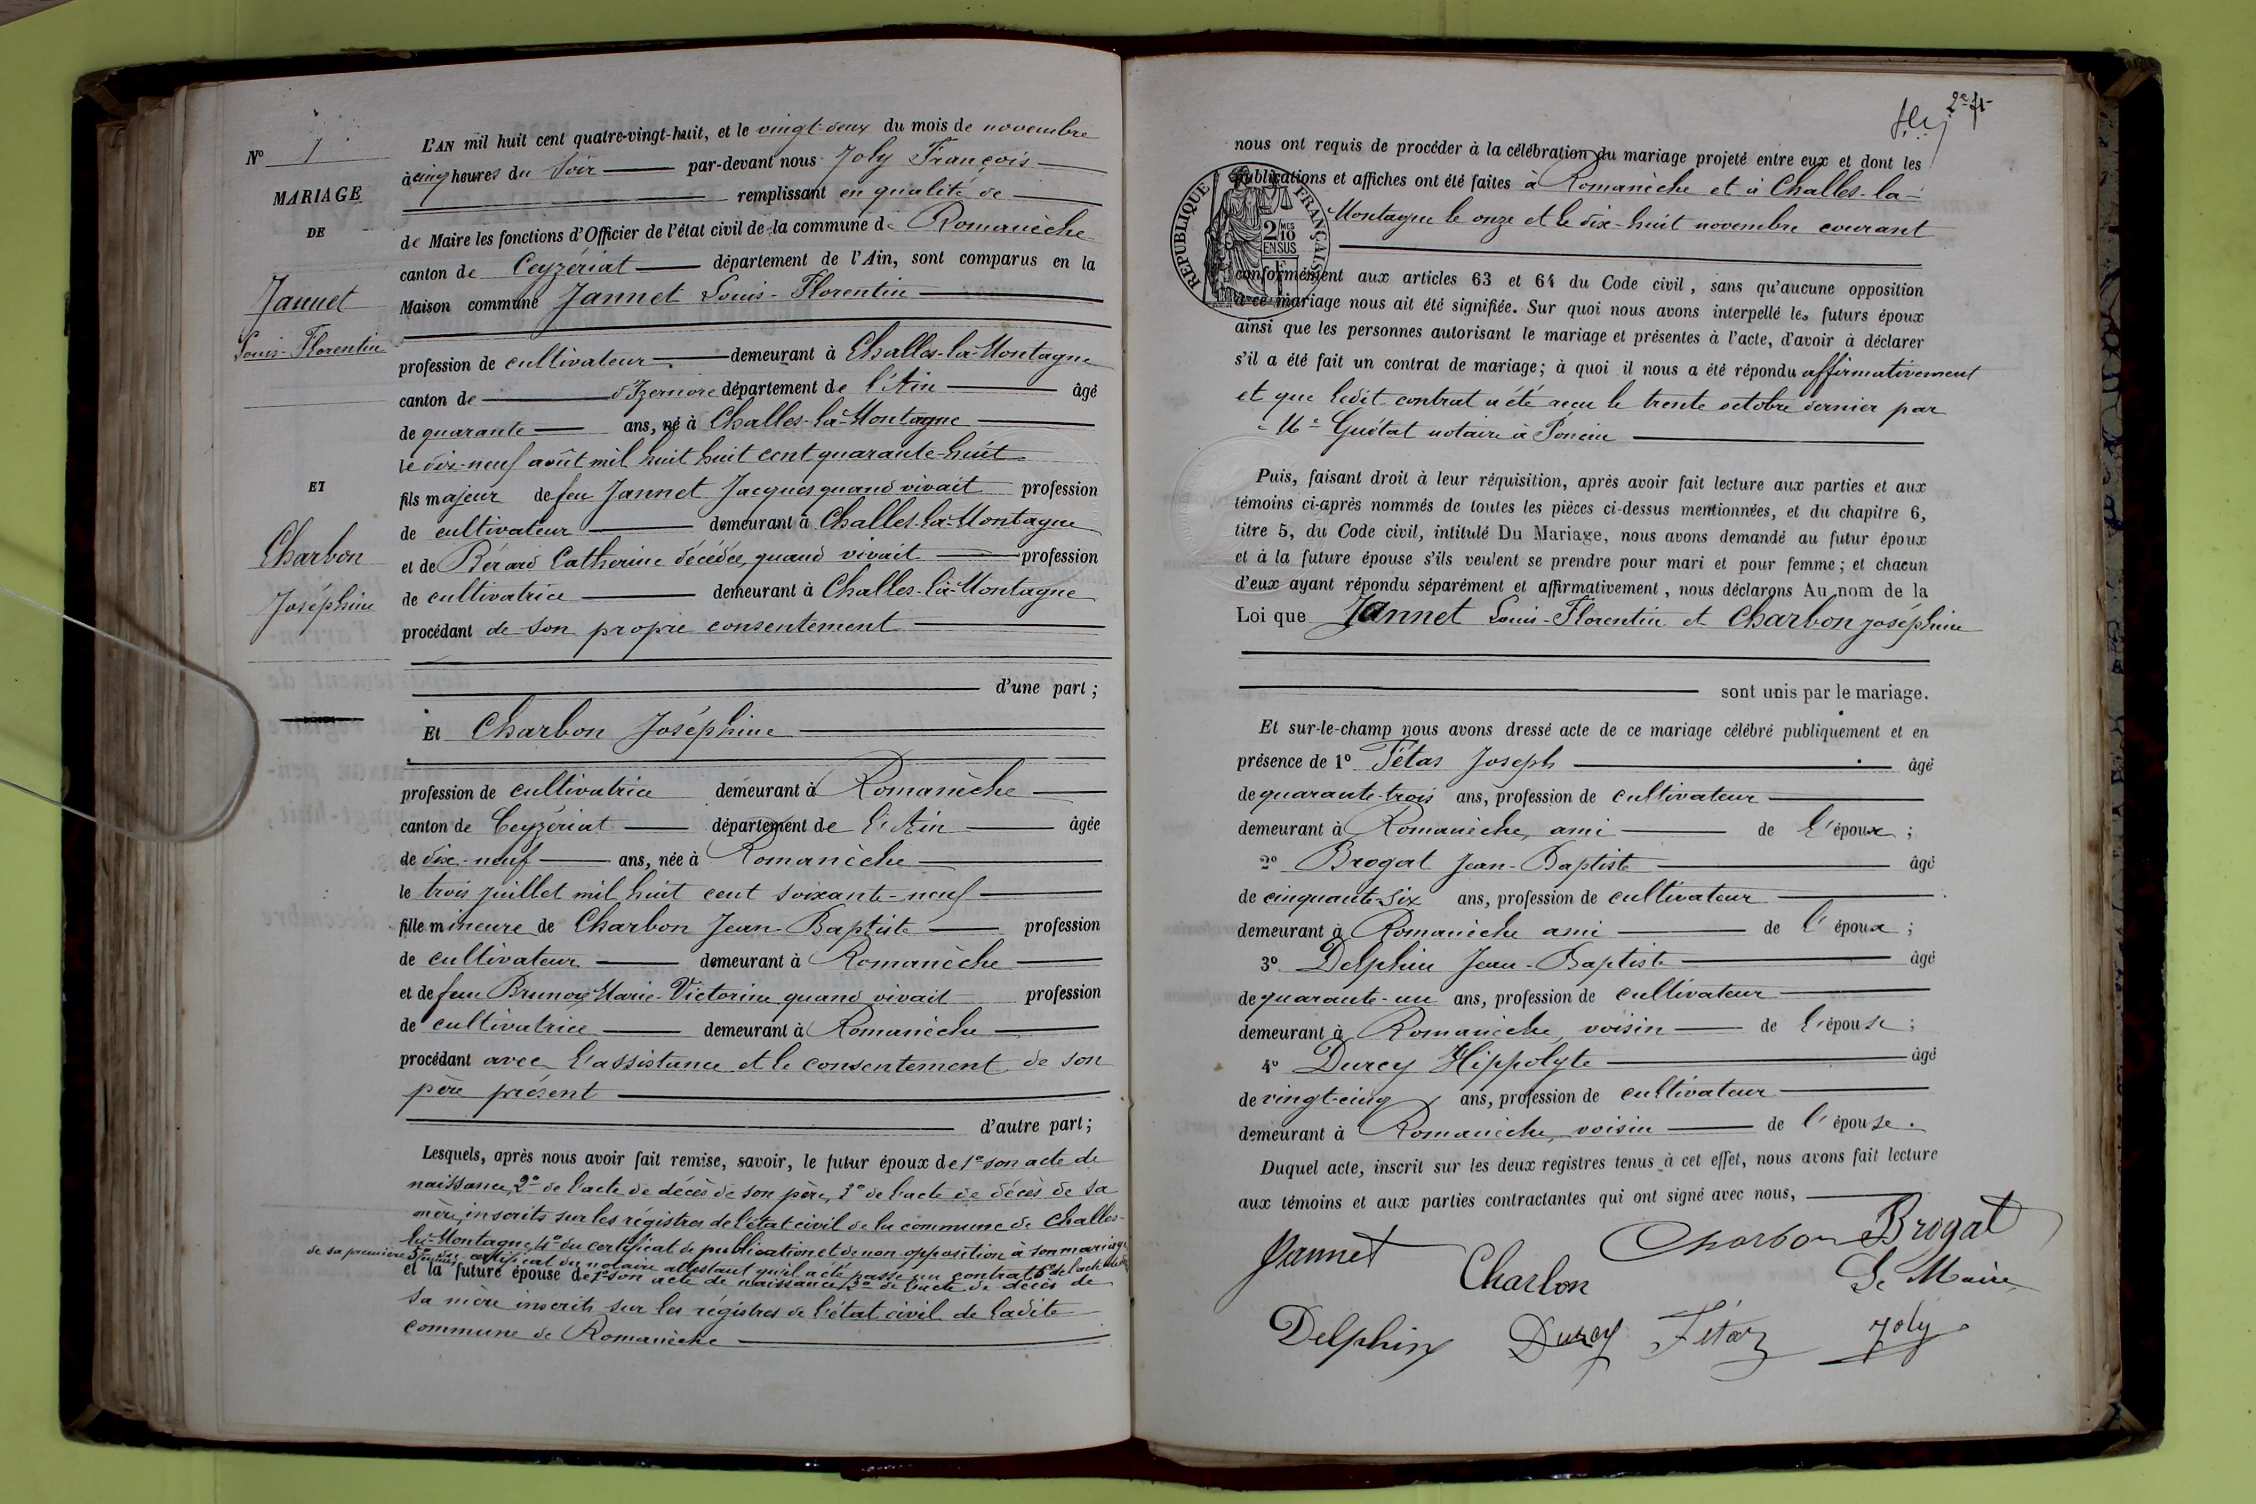 N° 7
MARIAGE
DE
Jannet
Louis-Florentin
ET
Charbon
Joséphine
L'AN mil huit cent quatre-vingt-huit, et le vingt-deux du mois de novembre
à cinq heures du soir par-devant nous Joly François
remplissant en qualité de
de Maire les fonctions d'Officier de l'état civil de la commune de Romanèche
canton de Ceyzériat département de l'Ain, sont comparus en la
Maison commune Jannet Louis-Florentin
profession de cultivateur demeurant à Challes-la-Montagne
canton de d'Izernore département de l'Ain âgé
de quarante ans, né à Challes-la-Montagne
le dix-neuf août mil huit huit cent quarante-huit
fils majeur de feu Jannet Jacques quand vivait profession
de cultivateur demeurant à Challes-la-Montagne
et de Bérard Catherine décédée, quand vivait profession
de cultivatrice demeurant à Challes-la-Montagne
procédant de son propre consentement
d'une part ;
Et Charbon Joséphine
profession de cultivatrice demeurant à Romanèche
canton de Ceyzériat département de l'Ain âgée
de dix-neuf ans, née à Romanèche
le trois juillet mil huit cent soixante-neuf
fille mineure de Charbon Jean-Baptiste profession
de cultivateur demeurant à Romanèche
et de feu Marie-Victorine quand vivait profession
de cultivatrice demeurant à Romanèche
procédant avec l'assistance et le consentement de son
père présent
d'autre part ;
Lesquels, après nous avoir fait remise, savoir, le futur époux de 1° son acte de
naissance, 2° de l'acte de décès de son père, 3° de l'acte de décès de sa
mère, inscrits sur les régistres de l'état civil de la commune de Challes-
la-Montagne, 4° du certificat de publication et de non-opposition à son mariage
5° du certificat du notaire attestant qu'il a été passé un contrat 6° de l'acte
de sa première
et la future épouse de 1° son acte de naissance, 2° de l'acte de décès de
sa mère inscrits sur les régistres de l'état civil de ladite
commune de Romanèche
2e
nous ont requis de procéder à la célébration du mariage projeté entre eux et dont les
publications et affiches ont été faites à Romanèche et à Challes-la-
Montagne le onze et le dix-huit novembre courant
RÉPUBLIQUE FRANÇAISE
2 MES
10
EN SUS
conformément aux articles 63 et 64 du Code civil, sans qu'aucune opposition
à ce mariage nous ait été signifiée. Sur quoi nous avons interpellé les futurs époux
ainsi que les personnes autorisant le mariage et présentes à l'acte, d'avoir à déclarer
s'il a été fait un contrat de mariage; à quoi il nous a été répondu affirmativement
et que ledit contrat a été reçu le trente octobre dernier par
Me Guétat notaire à Poncin
Puis, faisant droit à leur réquisition, après avoir fait lecture aux parties et aux
témoins ci-après nommés de toutes les pièces ci-dessus mentionnées, et du chapitre 6,
titre 5, du Code civil, intitulé Du Mariage, nous avons demandé au futur époux
et à la future épouse s'ils veulent se prendre pour mari et pour femme; et chacun
d'eux ayant répondu séparément et affirmativement, nous déclarons Au nom de la
Loi que Jannet Louis-Florentin et Charbon Joséphine
sont unis par le mariage.
Et sur-le-champ nous avons dressé acte de ce mariage célébré publiquement et en
présence de 1° Fétas Joseph âgé
de quarante-trois ans, profession de cultivateur
demeurant à Romanèche, ami de l'époux ;
2° Brogat Jean-Baptiste âgé
de cinquante-six ans, profession de cultivateur
demeurant à Romanèche ami de l'époux ;
3° Delphin Jean-Baptiste âgé
de quarante-un ans, profession de cultivateur
demeurant à Romanèche, voisin de l'épouse ;
4° Durcy Hippolyte âgé
de vingt-cinq ans, profession de cultivateur
demeurant à Romanèche, voisin de l'épouse.
Duquel acte, inscrit sur les deux registres tenus à cet effet, nous avons fait lecture
aux témoins et aux parties contractantes qui ont signé avec nous,
Jannet Charbon Charbon Brogat
Le Maire,
Delphin Durcy Fétaz Joly